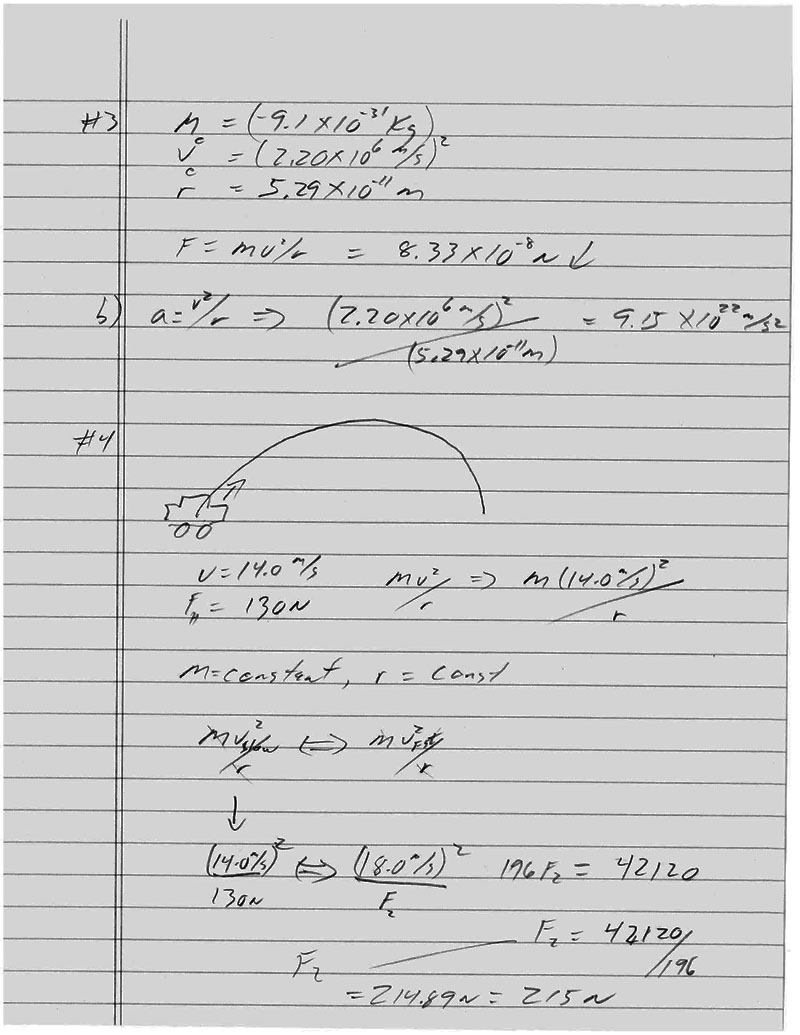 #3 Mₑ = (-9.1 × 10⁻³¹ Kg)
vₑ = (2.20 × 10⁶ m/s)²
r = 5.29 × 10⁻¹¹ m
F = mv²/r = 8.33 × 10⁻⁸ N ↓
b) a = v²/r ⇒ (2.20 × 10⁶ m/s)² / (5.29 × 10⁻¹¹ m) = 9.15 × 10²² m/s²
#4
v = 14.0 m/s mv²/r ⇒ m(14.0 m/s)²/r
F₁₁ = 130 N
m = constant, r = const
mv²slow/r ⇔ mv²Fst/r
↓
(14.0 m/s)²/130 N ⇔ (18.0 m/s)²/F₂ 196 F₂ = 42120
F₂ = 42120/196
F₂ = 214.89 N = 215 N